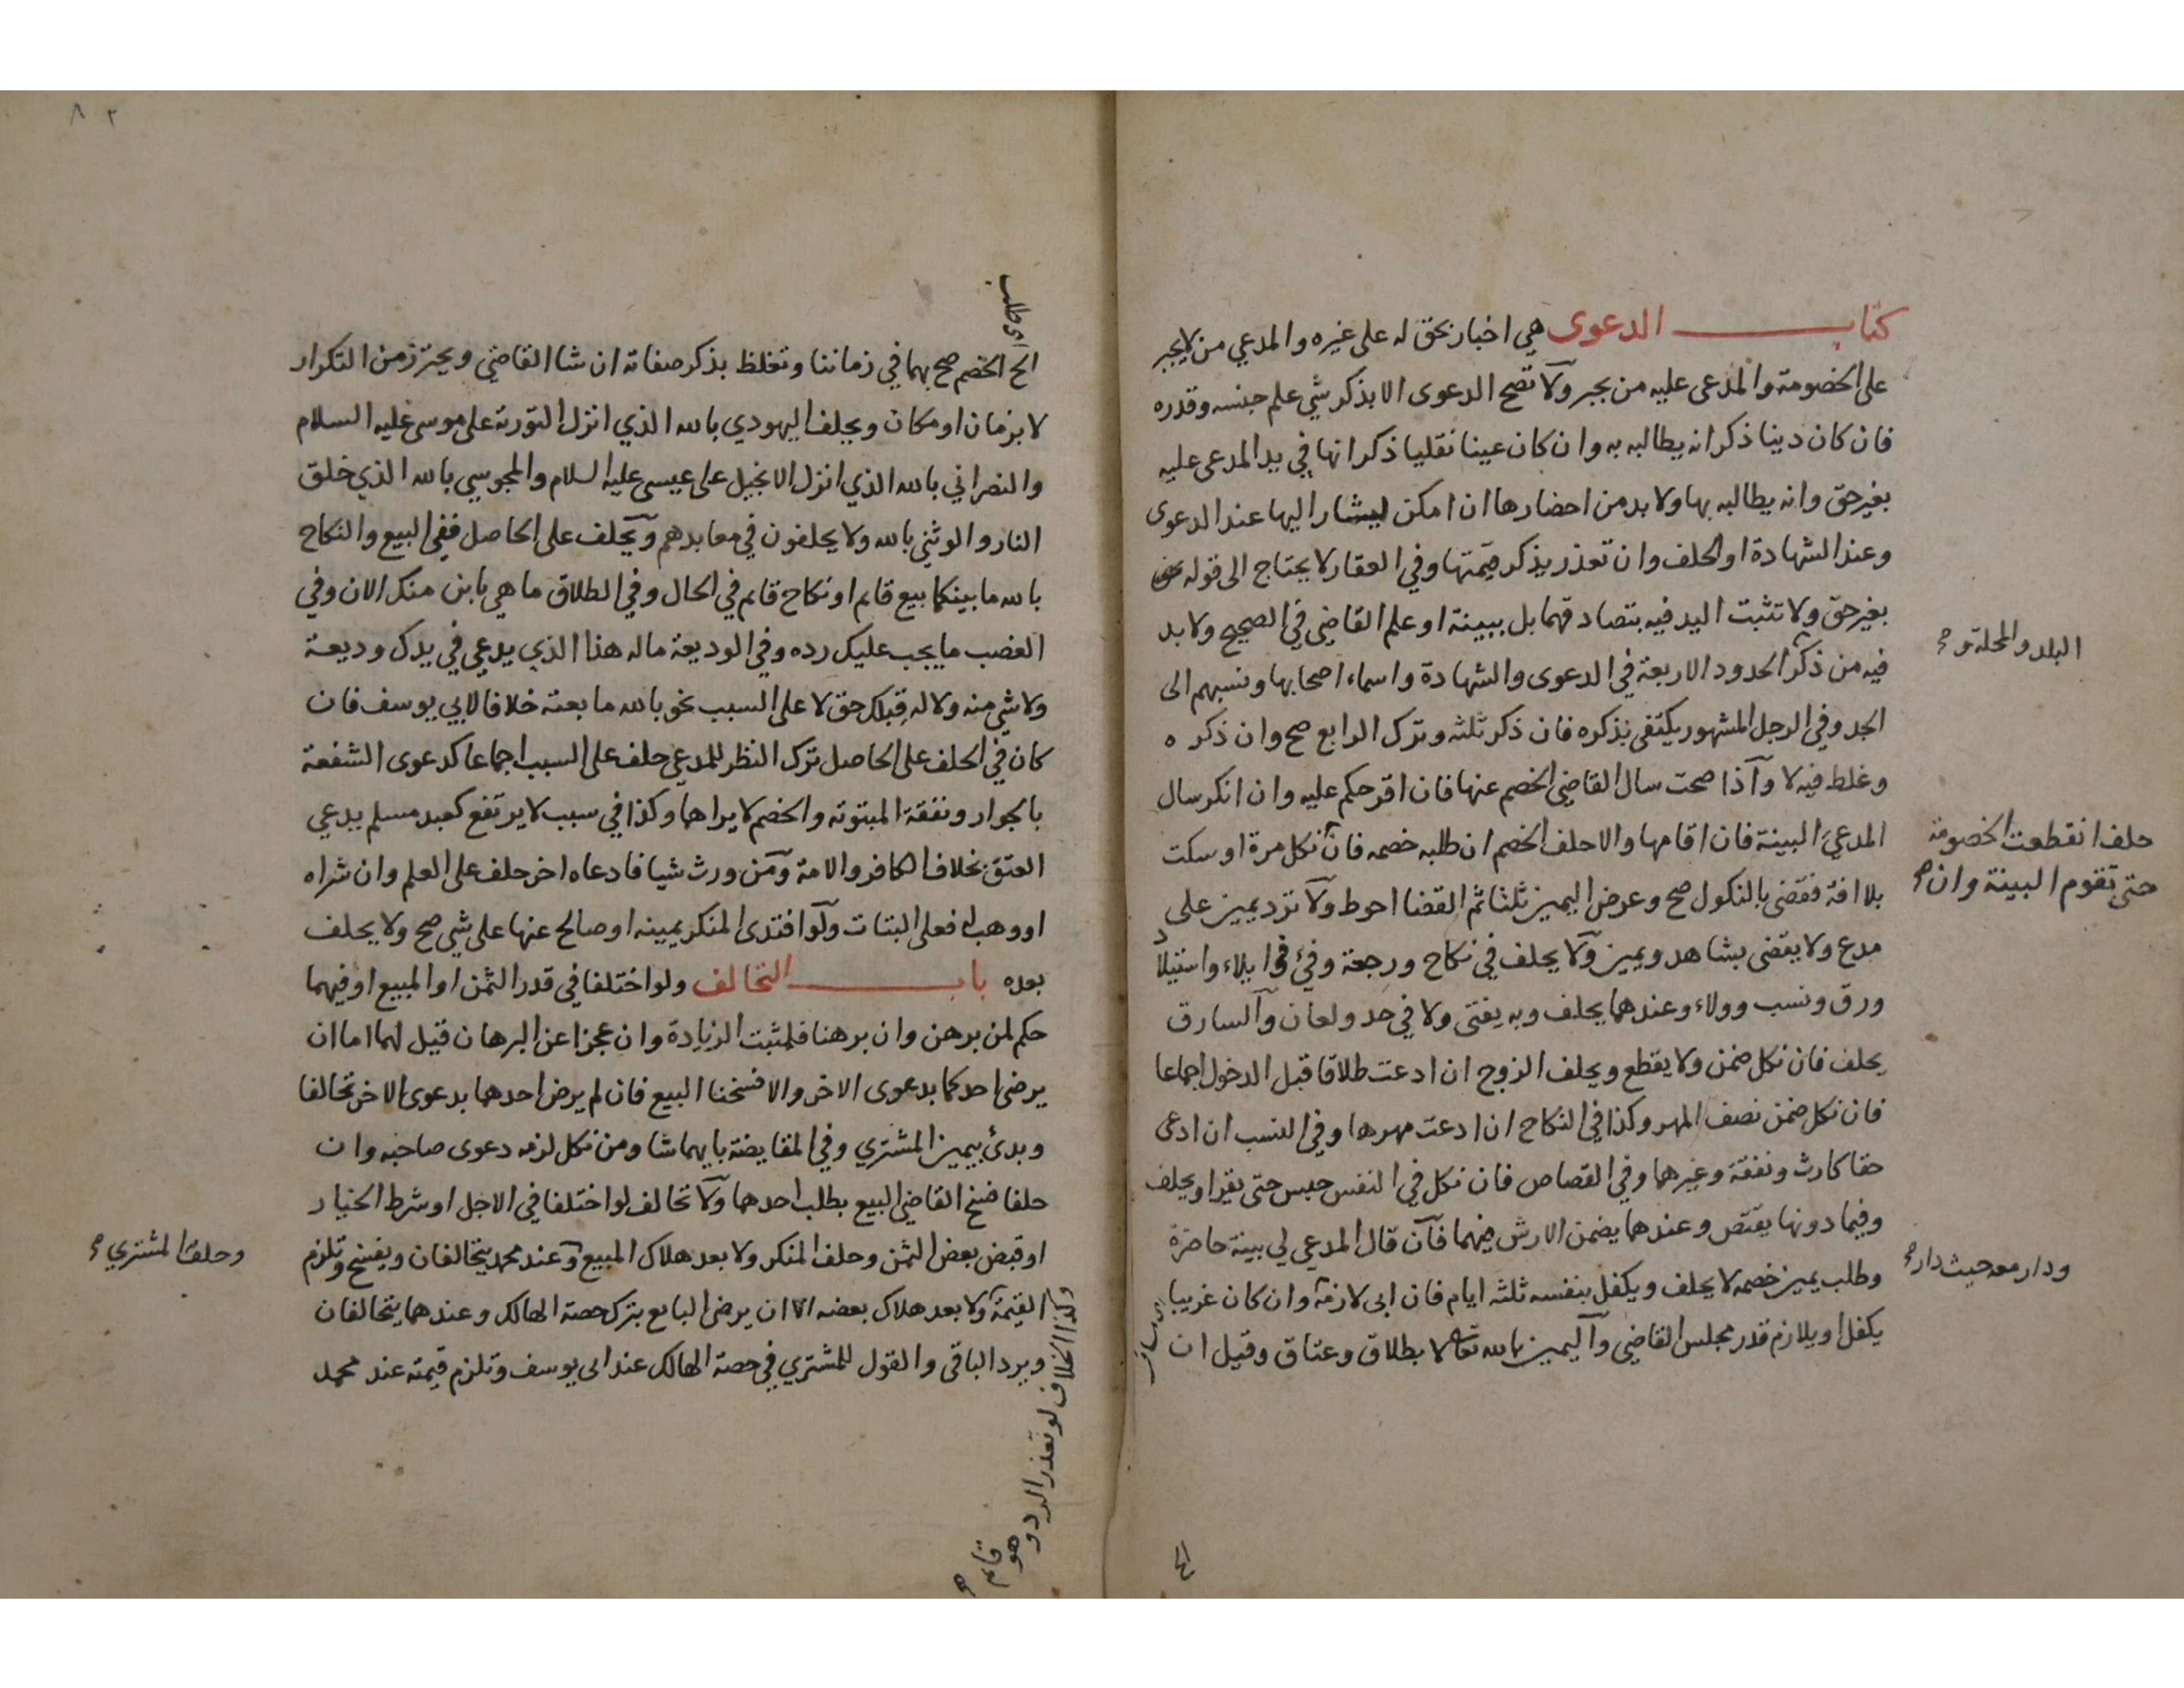 كتاب الدعوى هي اخبار بحق له على غيره والمدعي من لا يجبر
على الخصومة والمدعى عليه من يجبر ولا تصح الدعوى الا بذكر شي علم جنسه وقدره
فان كان دينا ذكر انه يطالبه به وان كان عينا نقليا ذكر انها في يد المدعى عليه
بغير حق وانه يطالبه بها ولا بد من احضارها ان امكن ليشار اليها عند الدعوى
وعند الشهادة او الحلف وان تعذر يذكر قيمتها وفي العقار لا يحتاج الى قوله
بغير حق ولا تثبت اليد فيه بتصادقهما بل ببينة او علم القاضي في الصحيح ولا بد
البلد والمحلة و صح
فيه من ذكر الحدود الاربعة في الدعوى والشهادة واسماء اصحابها ونسبهم الى
الجد وفي الرجل المشهور يكتفى بذكره فان ذكر ثلثه وترك الرابع صح وان ذكره
وغلط فيه لا واذا صحت سال القاضي الخصم عنها فان اقر حكم عليه وان انكر سال
المدعي البينة فان اقامها والا حلف الخصم ان طلبه خصمه فان نكل مرة او سكت
حلف انقطعت الخصومة
حتى تقوم البينة وان صح
بلا افة فقضى بالنكول صح وعرض اليمين ثلثا ثم القضا احوط ولا ترد يمين على
مدع ولا يقضى بشاهد ويمين ولا يحلف في نكاح ورجعة وفئ في ايلاء واستيلاد
ورق ونسب وولاء وعندهما يحلف وبه يفتى ولا في حد ولعان والسارق
يحلف فان نكل ضمن ولا يقطع ويحلف الزوج ان ادعت طلاقا قبل الدخول اجماعا
فان نكل ضمن نصف المهر وكذا في النكاح ان ادعت مهرها وفي النسب ان ادعى
حقا كارث ونفقة وغيرهما وفي القصاص فان نكل في النفس حبس حتى يقر او يحلف
وفيما دونها يقتص وعندهما يضمن الارش فيهما فان قال المدعي لي بينة حاضرة
وطلب يمين خصمه لا يحلف ويكفل بنفسه ثلثه ايام فان ابى لازمه وان كان غريبا
ودار معه حيث دار صح
يكفل او يلازم قدر مجلس القاضي واليمين بالله تعالى لا بطلاق وعتاق وقيل ان
الح
٨٢
اي طلب
الح الخصم صح بهما في زماننا وتغلظ بذكر صفاته ان شا القاضي ويحترز من التكرار
لا بزمان او مكان ويحلف اليهودي بالله الذي انزل التورية على موسى عليه السلام
والنصراني بالله الذي انزل الانجيل على عيسى عليه السلام والمجوسي بالله الذي خلق
النار والوثني بالله ولا يحلفون في معابدهم ويحلف على الحاصل ففي البيع والنكاح
بالله ما بينكما بيع قايم او نكاح قايم في الحال وفي الطلاق ما هي باين منك الان وفي
الغصب ما يجب عليك رده وفي الوديعة ماله هذا الذي يدعي في يدك وديعة
ولا شي منه ولا له قبلك حق لا على السبب نحو بالله ما بعته خلافا لابي يوسف فان
كان في الحلف على الحاصل ترك النظر للمدعي حلف على السبب اجماعا كدعوى الشفعة
بالجوار ونفقة المبتوتة والخصم لا يراهما وكذا في سبب لا يرتفع كعبد مسلم يدعي
العتق بخلاف الكافر والامة ومن ورث شيا فادعاه اخر حلف على العلم وان شراه
او وهب له فعلى البتات ولو افتدى المنكر يمينه او صالح عنها على شي صح ولا يحلف
بعده باب التحالف ولو اختلفا في قدر الثمن او المبيع او فيهما
حكم لمن برهن وان برهنا فلمثبت الزيادة وان عجزا عن البرهان قيل لهما اما ان
يرضى احدكما بدعوى الاخر والا فسخنا البيع فان لم يرض احدهما بدعوى الاخر تحالفا
وبدئ بيمين المشتري وفي المقايضة بايهما شا ومن نكل لزمه دعوى صاحبه وان
حلفا فسخ القاضي البيع بطلب احدهما ولا تحالف لو اختلفا في الاجل او شرط الخيار
او قبض بعض الثمن وحلف المنكر ولا بعد هلاك المبيع وعند محمد يتحالفان ويفسخ وتلزم
وحلف المشتري صح
القيمة ولا بعد هلاك بعضه الا ان يرضى البايع بترك حصة الهالك وعندهما يتحالفان
ويرد الباقي والقول للمشتري في حصة الهالك عند ابي يوسف وتلزم قيمته عند محمد
وكذا الخلاف لو تعذر الرد وهو
قايم صح